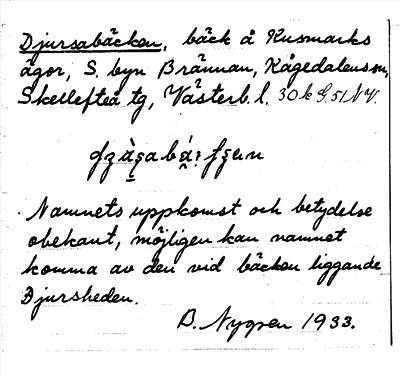 Djursabäcken, bäck å Kusmarks
ägor, S. byn Brännan, Kågedalens sn,
Skellefteå tg, Västerb. l. 30 k G.51 NV.
Namnets uppkomst och betydelse
obekant, möjligen kan namnet
komma av den vid bäcken liggande
Djursheden.
B. Nygren 1933.